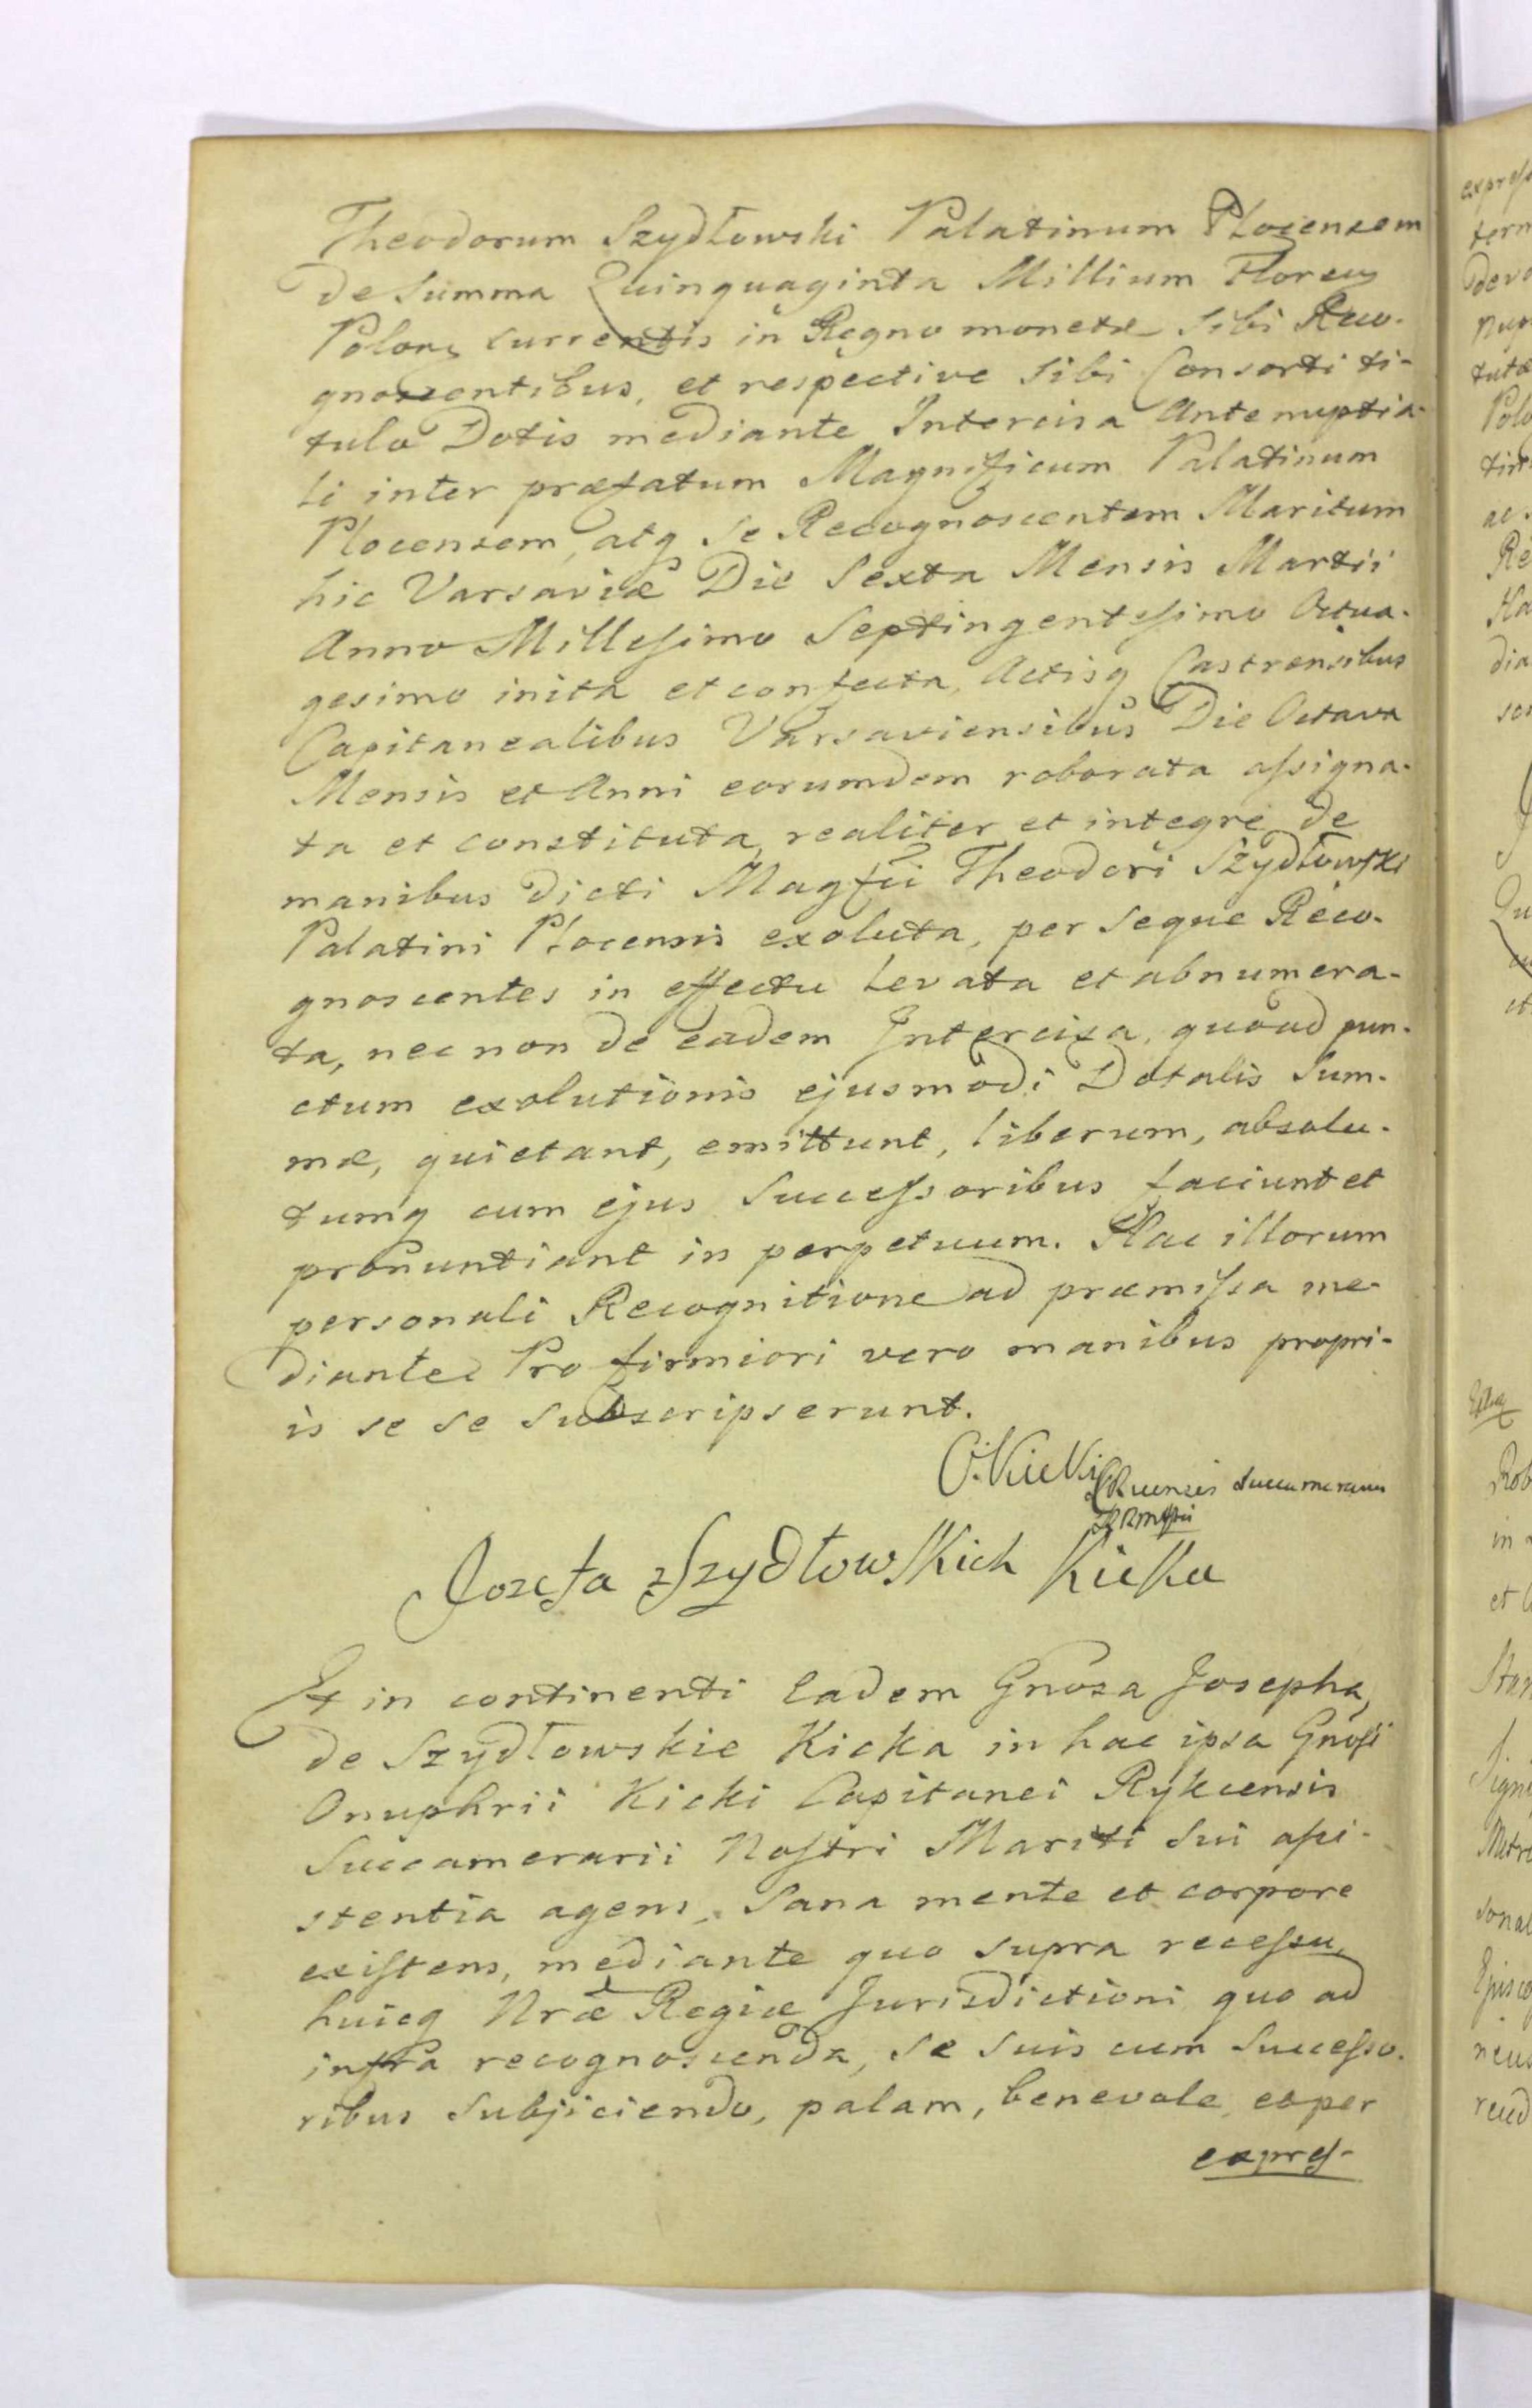 Theodorum Szydłowski Palatinum Plocensem
de Summa Quinquaginta Millium Floreñ
Polonˢ currentis in Regno monetæ Sibi Reco-
gnoscentibus, et respective Sibi Consorti ti-
tulo Dotis mediante Intercisa Antenuptia-
li inter præfatum Magnificum Palatinum
Plocensem, atq Se Recognoscentem Maritum
hic Varsaviæ Die Sexta Mensis Martii
Anno Millesimo Septingentesimo Octua-
gesimo inita et confecta, Actisq Castrensibus
Capitanealibus Varsaviensibus Die Octava
Mensis et Anni eorumdem roborata assigna-
ta et constituta, realiter et integre de
manibus dicti Magfci Theodori Szydłowski
Palatini Plocensis exoluta, per Seque Reco-
gnoscentes in effectu levata et abnumera-
ta, nec non de eadem Intercisa, quoad pun-
ctum exolutionis ejusmodi Dotalis Sum-
mæ, quietant, emittunt, liberum, absolu-
tumq cum ejus Successoribus faciunt et
pronuntiant in perpetuum. Hac illorum
personali Recognitione ad præmissa me-
diante Pro firmiori vero manibus propri-
is se se Subscripserunt.
O. Kicki
Succamerarius
Jozefa z Szydłowskich Kicka
Et in continenti Eadem Gnosa Josepha,
de Szydłowskie Kicka in hac ipsa Gnosi
Onuphrii Kicki Capitanei Rykcensis
Succamerarii Nostri Mariti Sui assi-
stentia agens, Sana mente et corpore
existens, mediante quo supra recessu,
huicq Nræ Regiæ Jurisdictioni quo ad
infra recognoscenda, Se Suis cum Successo-
ribus Subjiciendo, palam, benevole, eoper
expres-